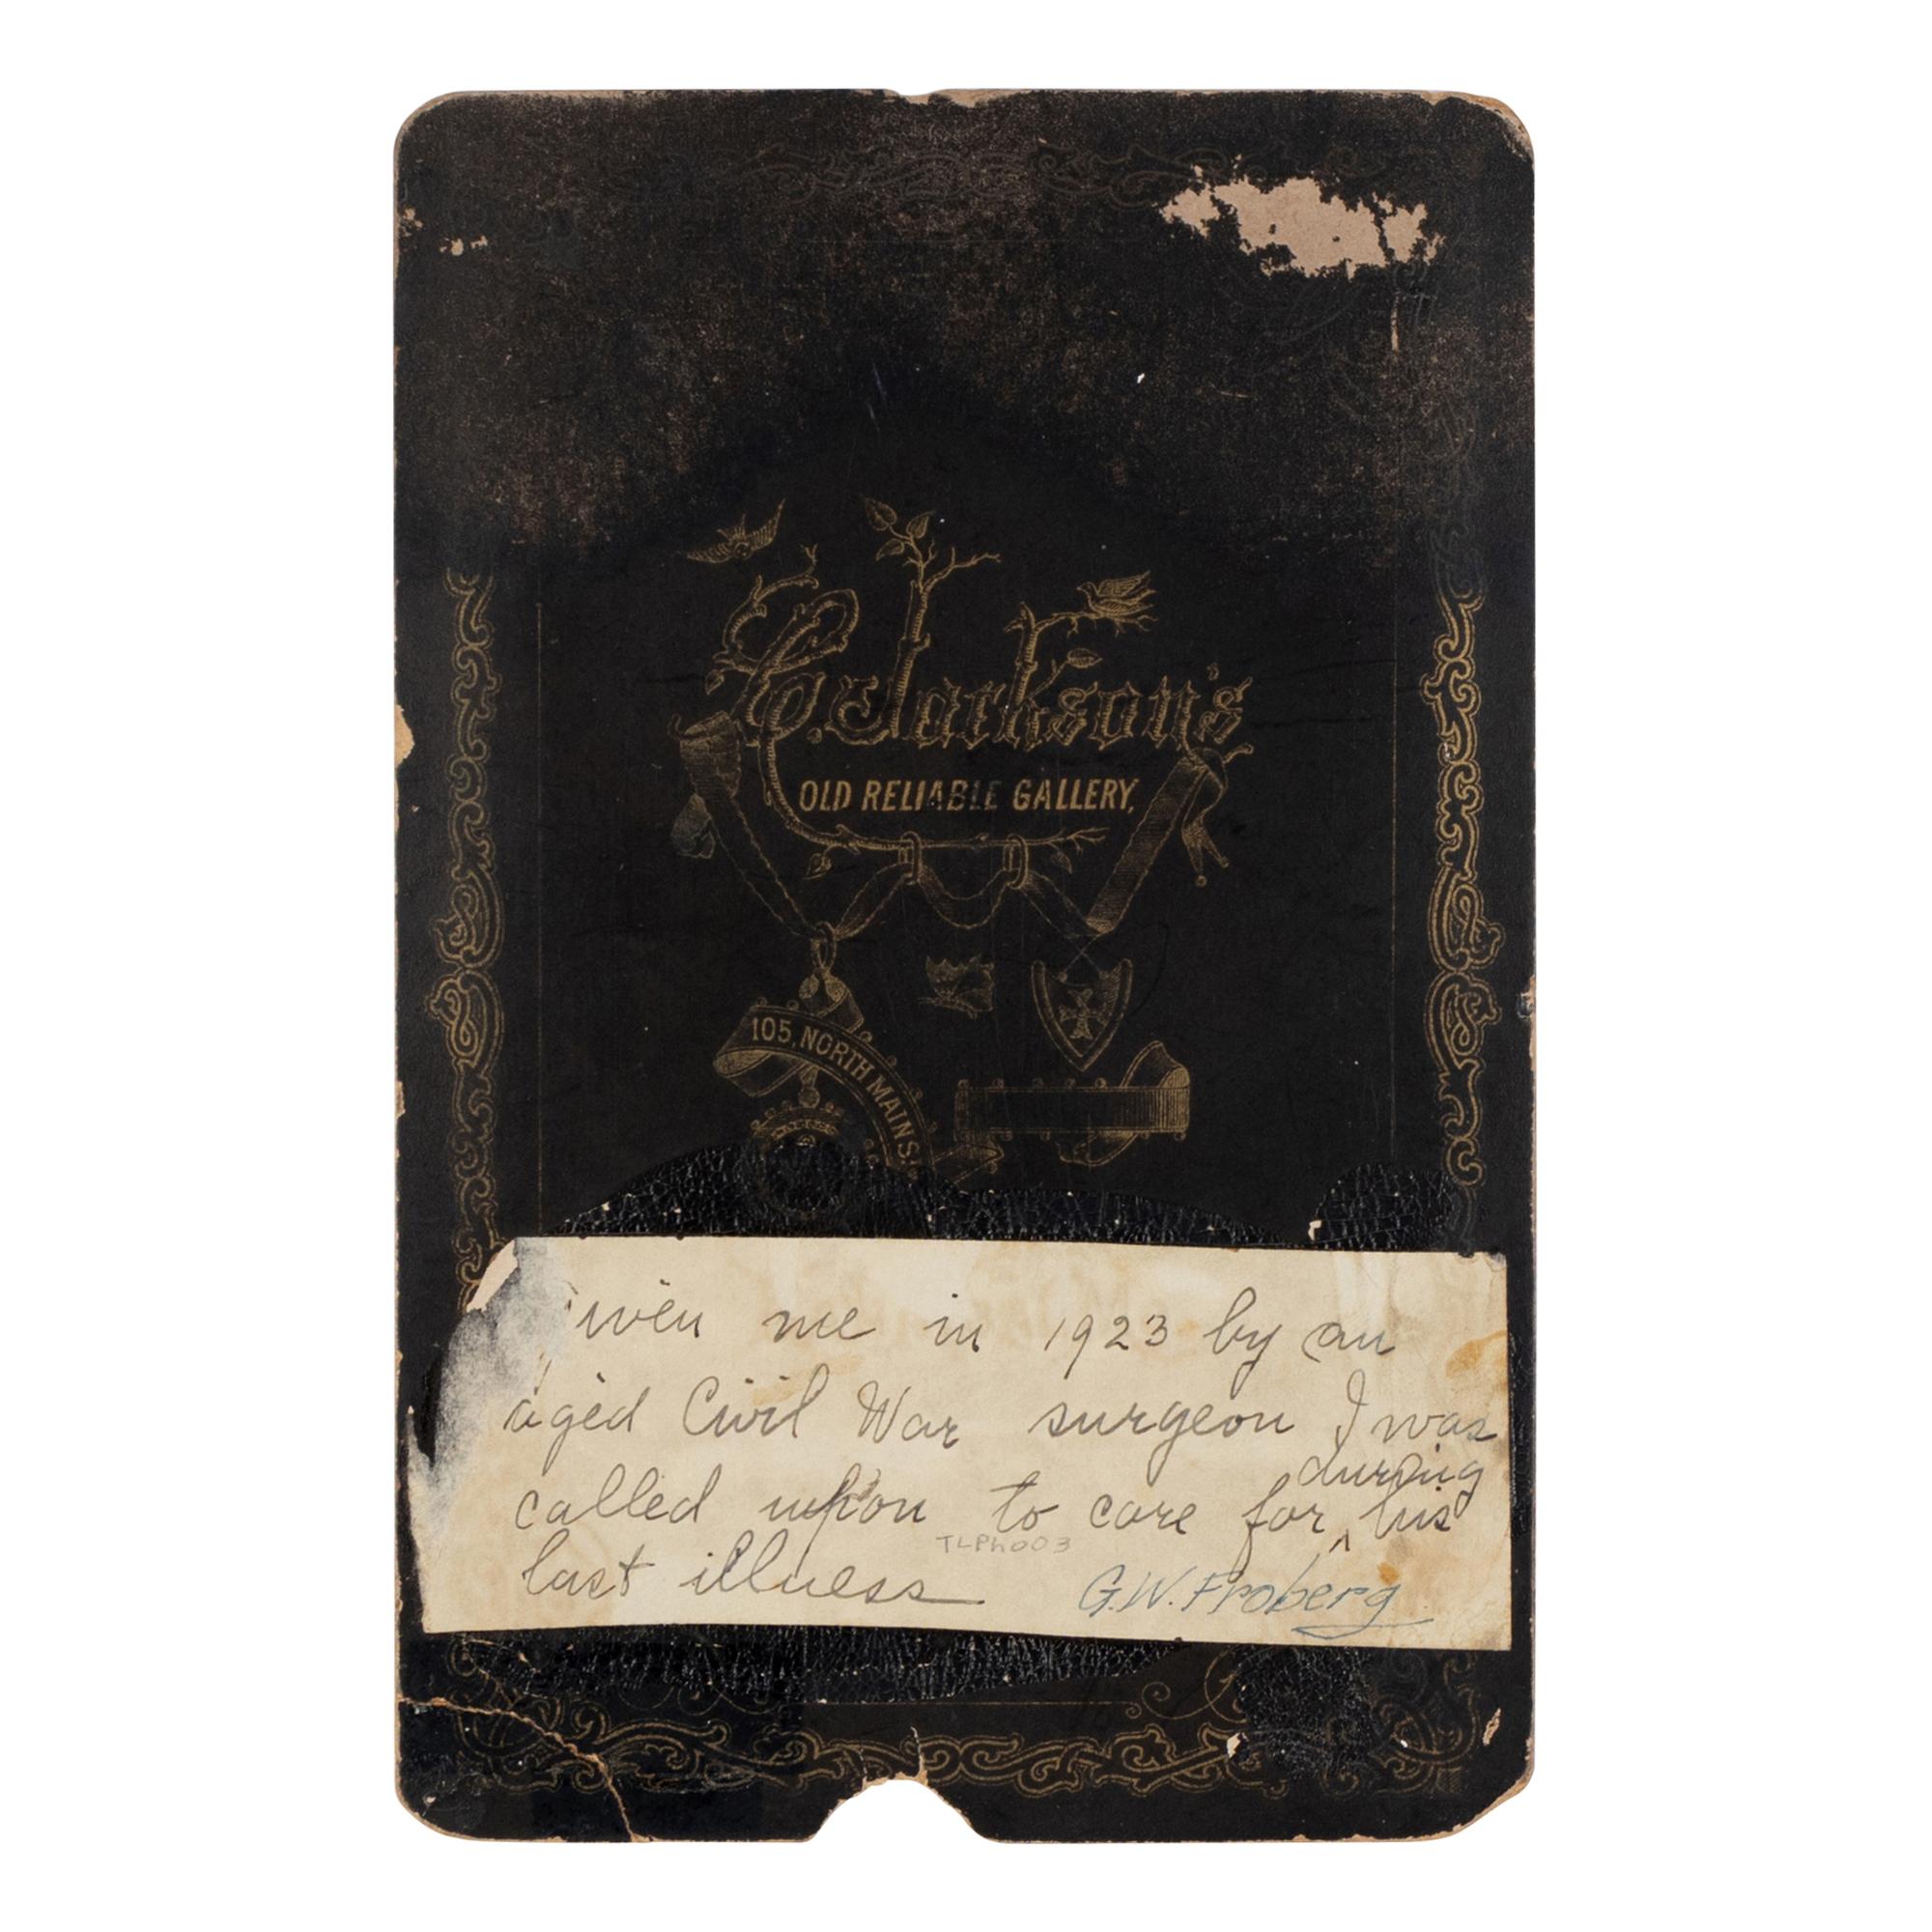 C. Jackson's
OLD RELIABLE GALLERY,
105, NORTH MAIN S
Given me in 1923 by an
aged Civil War surgeon I was
during
called upon to care for ^ his
last illness
TLPh003
G.W. Froberg